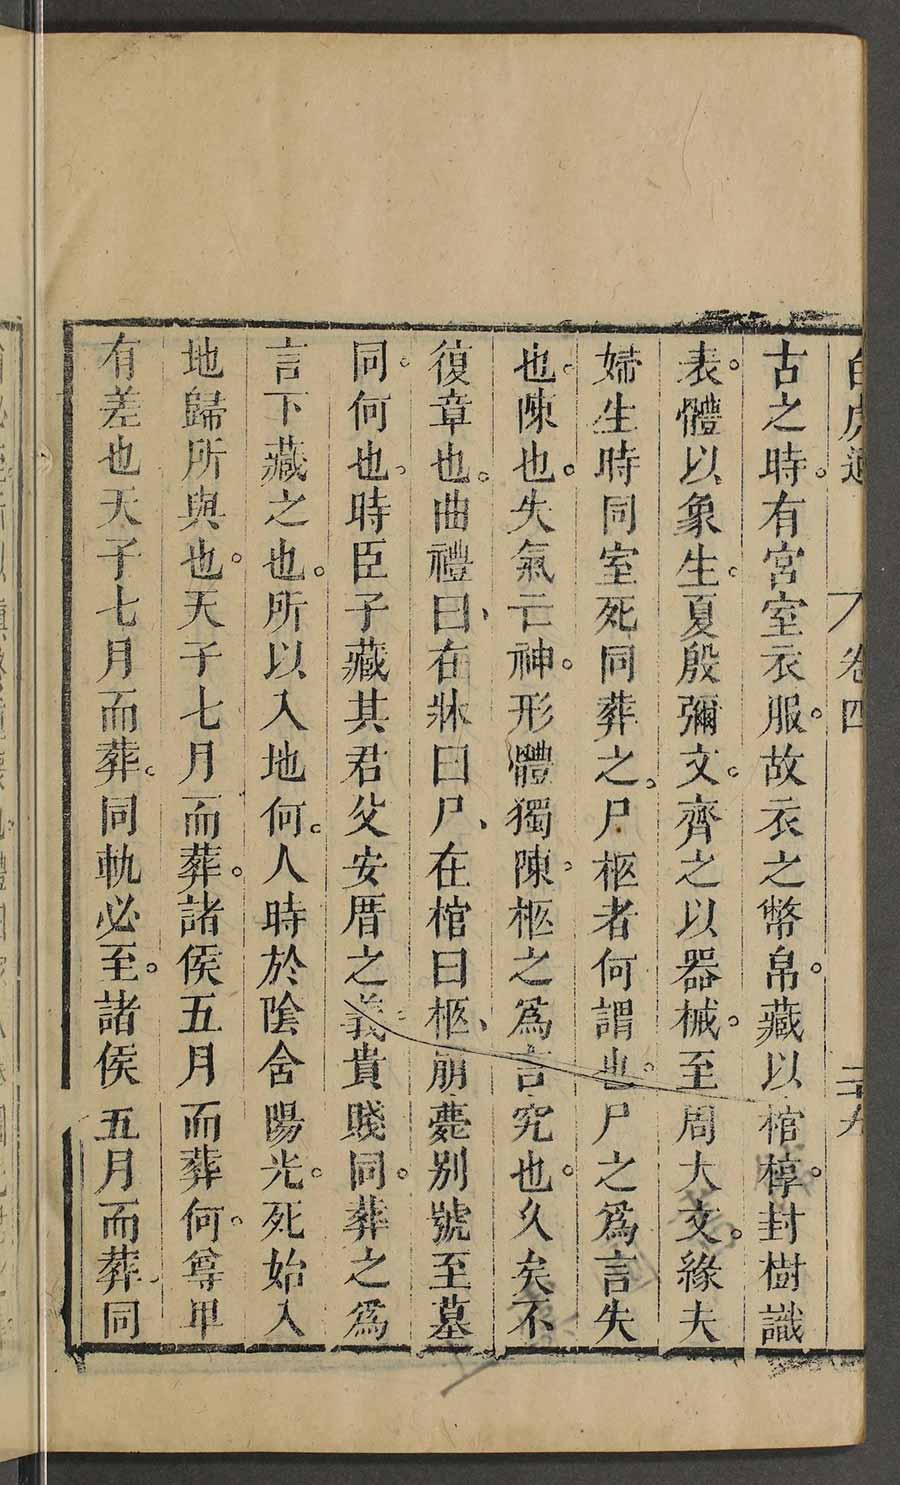 白虎通 卷四 三十九
古之時。有宮室衣服。故衣之幣帛。藏以棺椁。封樹識
表。體以象生。夏殷彌文。齊之以器械。至周大文。緣夫
婦生時同室死同葬之。尸柩者何謂也。尸之為言失
也。陳也。失氣亡神。形體獨陳。柩之為言究也。久矣不
復章也。曲禮曰、在牀曰尸、在棺曰柩、崩薨別號至墓
同。何也。時臣子藏其君父安厝之義貴賤同。葬之為
言下藏之也。所以入地何。人時於陰含陽光。死始入
地歸所與也。天子七月而葬。諸侯五月而葬何。尊卑
有差也天子七月而葬。同軌必至。諸侯五月而葬同